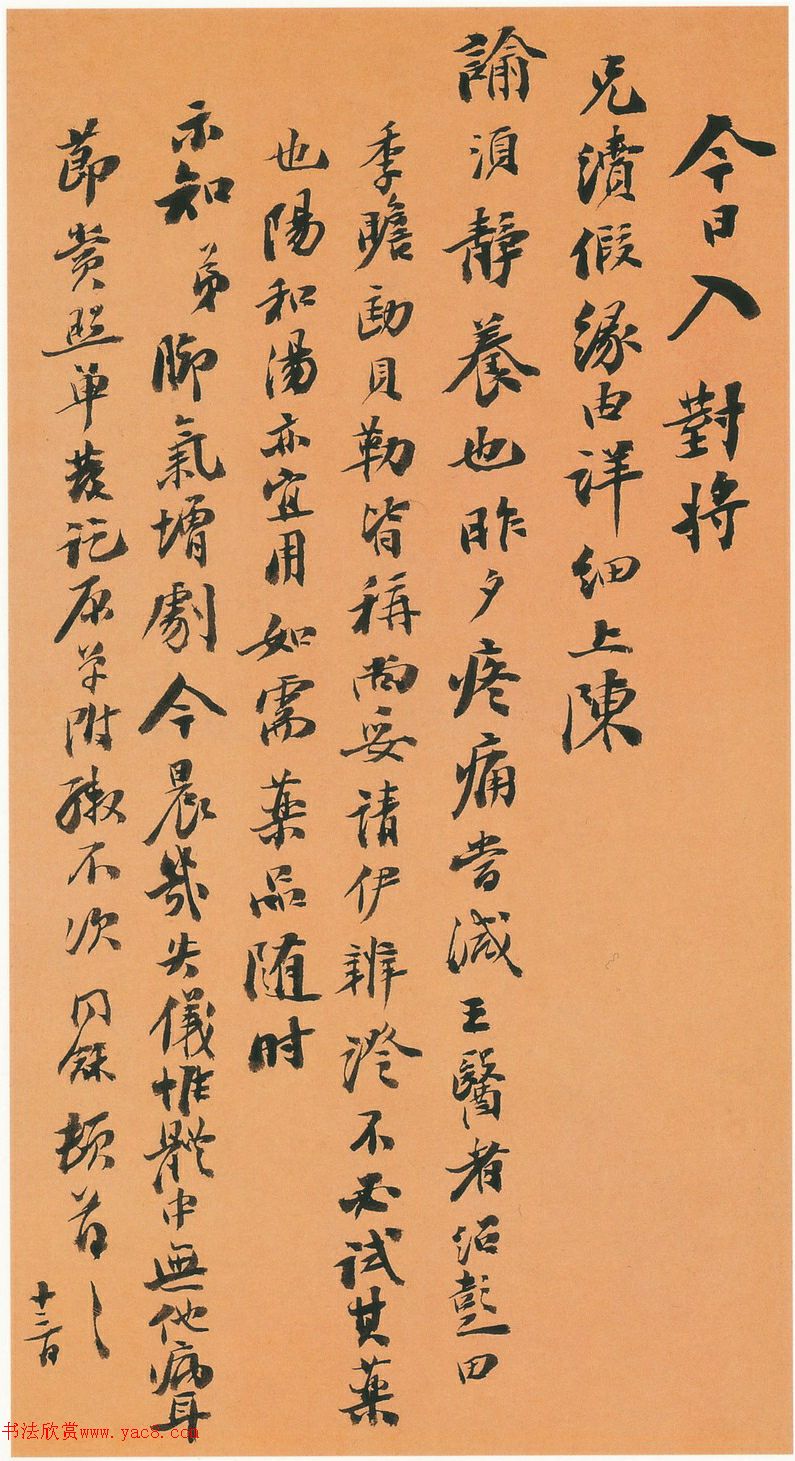 今日入對將
兄續假緣由詳細上陳
諭須靜養也昨夕疼痛當減王醫者紹彭田
季瞻勘貝勒皆稱尚妥請伊辨澄不必試其藥
也陽和湯亦宜用如需藥品随时
示知弟脚氣增劇今晨幾失儀惟體中無他病耳
節賞照单发訖原单附繳不次同龢頓首
十二日
书法欣赏www.yac8.com